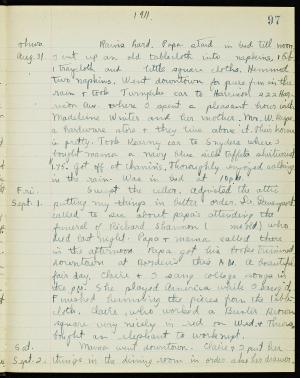 1911. 97
Thurs. Rains hard. Papa staid in bed till noon
Aug. 31. I cut up an old tablecloth into napkins, 1
traycloth and little square cloths. Hemmed
two napkins. Went downtown for pure fun in the
rain & took Turnpike car to Harrison 222 Har-
rison Ave. where I spent a pleasant hour with
Madeline Winter and her mother. Mr. W. keeps
a hardware store & they live above it. Their home
is pretty. Took Kearny car to Snyders where I
bought mama a navy blue silk taffeta shirtwaist
1.75. Got off at channis. Thoroughly enjoyed walking
in the rain. Was in bed at 10 P.M.
Fri. Swept the cellar, adjusted the attic
Sept. 1. putting my things in better order. Dr.
called to see about papa's attending the
funeral of Richard Shannon ( ) who
died last night. Papa & mama called there
in the afternoon. Papa got his hair trimmed
downtown at this A.M. A beautiful
fair day. Claire & I sang college songs in
the eve. She played America while I sang it.
Finished hemming the pieces from the table
cloth. Claire, who worked a
square very nicely in red on Wed. & Thurs.
bought an elephant to work next.
Sat. Mama went downtown. Claire & I put her
Sept. 2. things in the dining room in order also her drawer,